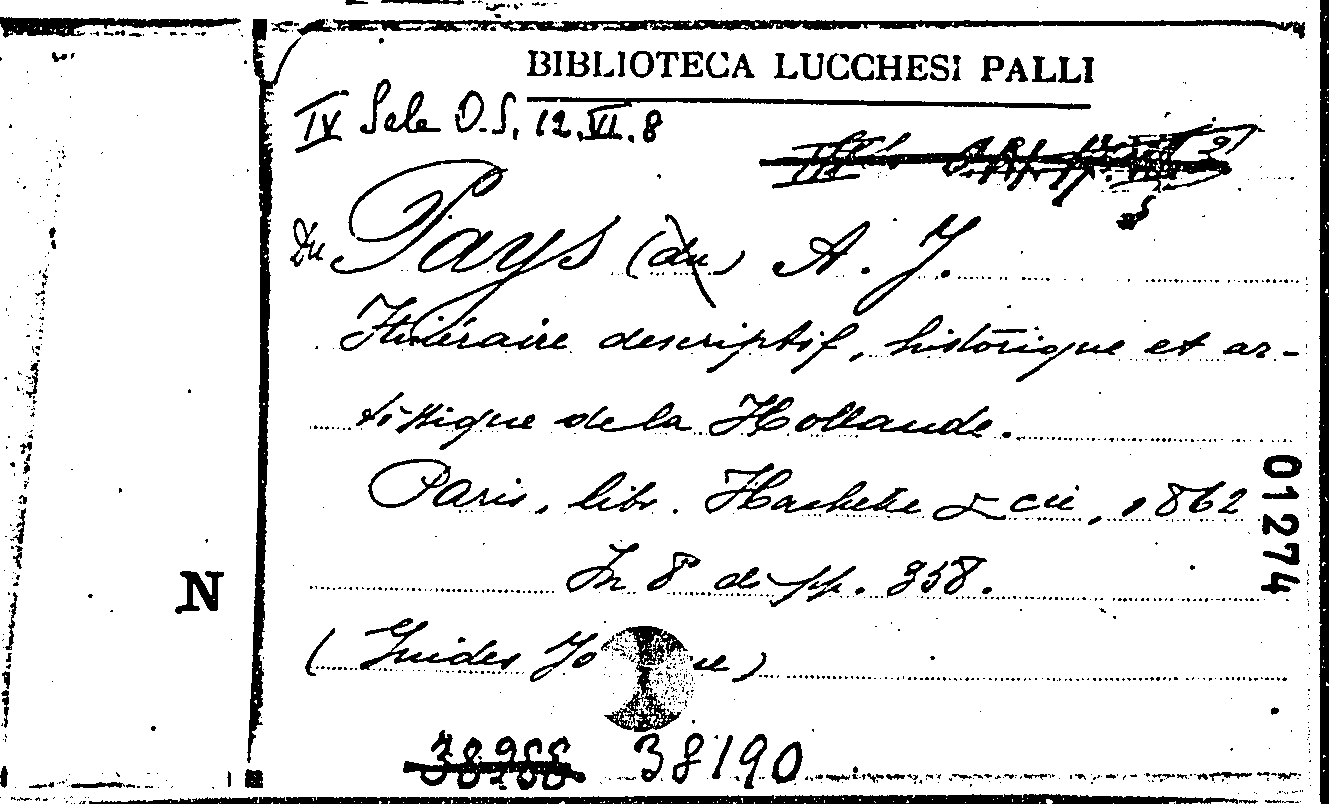 BIBLIOTECA LUCCHESI PALLI
IV Sala O.S. 12.VI.8
Du Pays (du) A. J.
Itinéraire descriptif, historique et ar-
tistique de la Hollande.
Paris, libr. Hachette & cie, 1862
In 8° di pp. 358.
(Guides Jo ne)
38190
01274
N